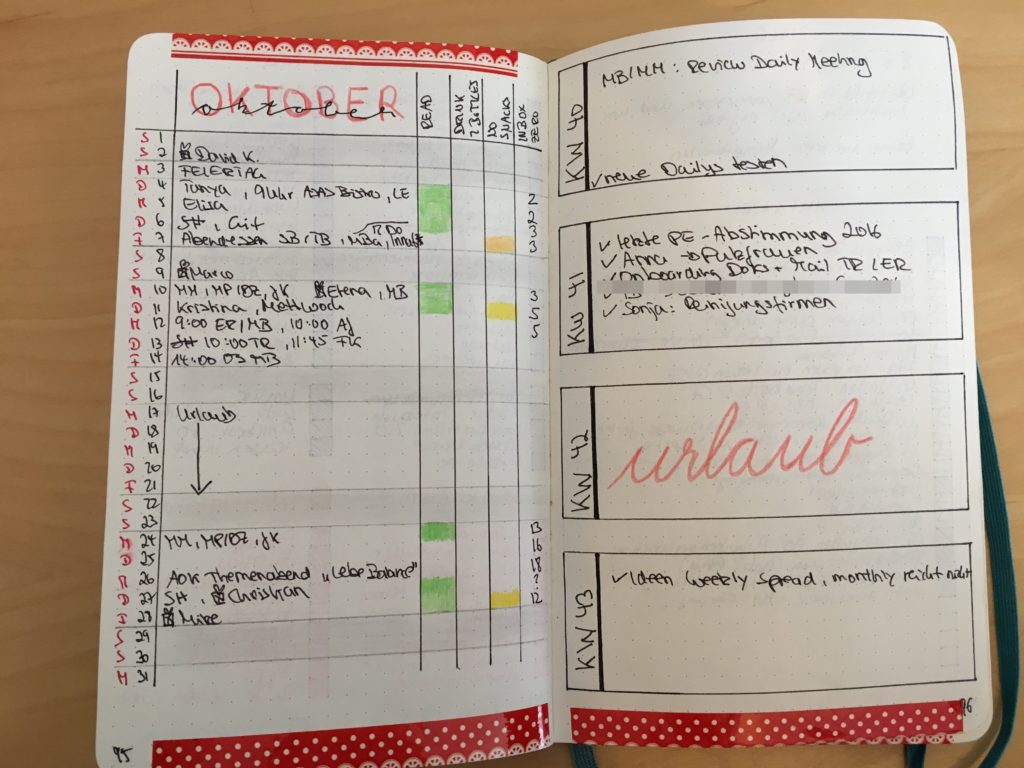 OKTOBER
oktober
READ
DRINK 2 BOTTLES
NO SNACKS
INBOX ZERO
S 1
S 2 David K.
M 3 FEIERTAG
D 4 Tanya, 9 Uhr ASAS Bistro, LE
M 5 Elisa 2
D 6 SH, Cait 2
3
F 7 Abendessen SB, TB, MBa, 3
S 8
S 9 Marco
M 10 MM, MP/DZ, JK Elena, MB 3
D 11 Kristina, Mettwoch 5
M 12 9:00 ER/MB, 10:00 AJ 5
D 13 SH 10:00 TR, 11:45 FK
F 14 14:00 03 MB
S 15
S 16
M 17 Urlaub
D 18
M 19
D 20
F 21
S 22
S 23
M 24 MM, MP/DZ, JK 13
D 25 16
M 26 AOK Themenabend „Lebe Balance" 18
?
D 27 SH, Christian 12
F 28 Mike
S 29
S 30
M 31
95
KW 40
MB/MM: Review Daily Meeting
✓ neue Dailys testen
KW 41
✓ letzte PE-Abstimmung 2016
✓ Anna → Putzfrauen
✓ Onboarding Doks + Mail TR LER
✓ Sonja: Reinigungsfirmen
KW 42
urlaub
KW 43
✓ Ideen weekly spread, monthly reicht nicht
96